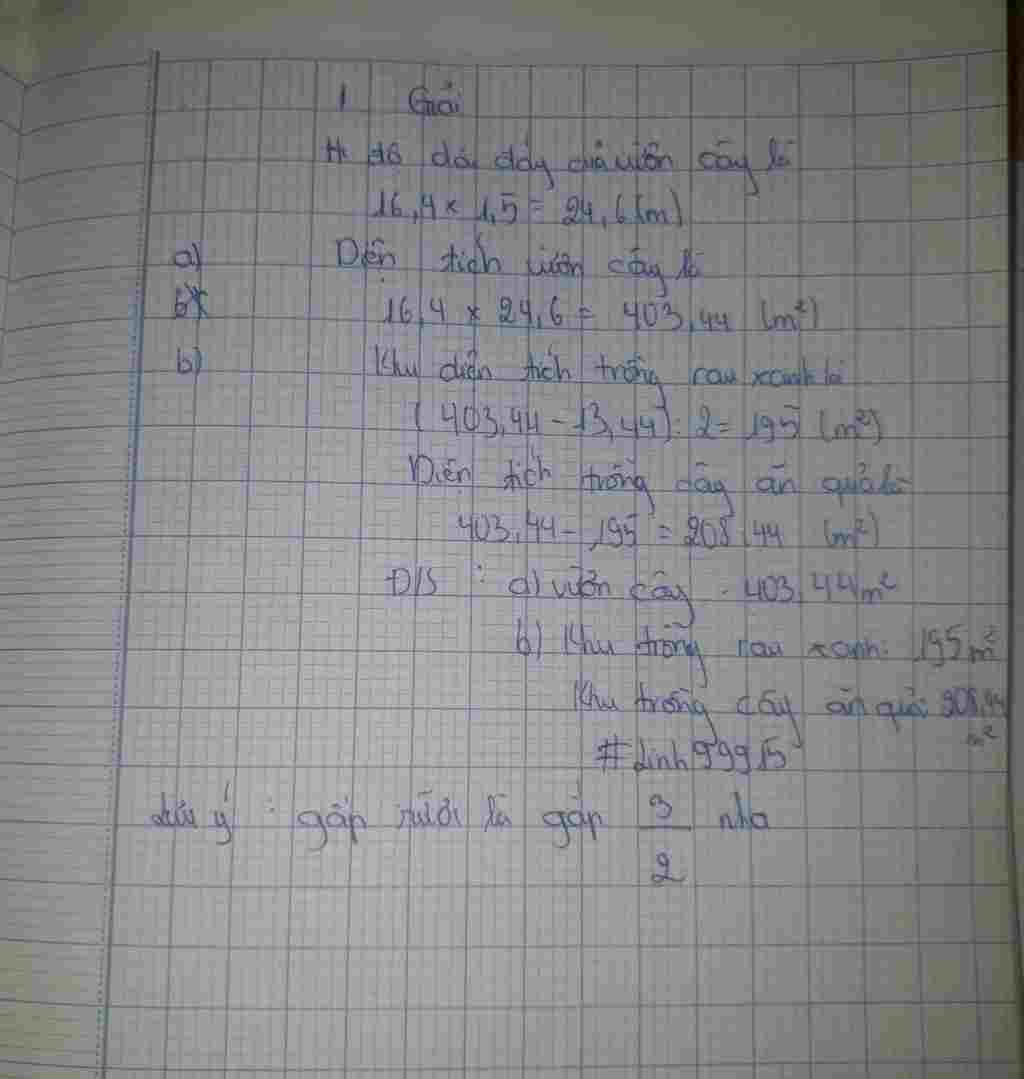 1 Giải
độ dài đáy của vườn cây là
16,4 × 1,5 = 24,6 (m)
a) Diện tích vườn cây là
b) 16,4 × 24,6 = 403,44 (m²)
b) Khu diện tích trồng rau xanh là
(403,44 - 13,44) : 2 = 195 (m²)
Diện tích trồng cây ăn quả là
403,44 - 195 = 208,44 (m²)
Đ/S : a) vườn cây : 403,44 m²
b) Khu trồng rau xanh: 195 m²
Khu trồng cây ăn quả: 208,44
m²
#Linh99915
Lưu ý : gấp rưỡi là gấp 3/2 nha